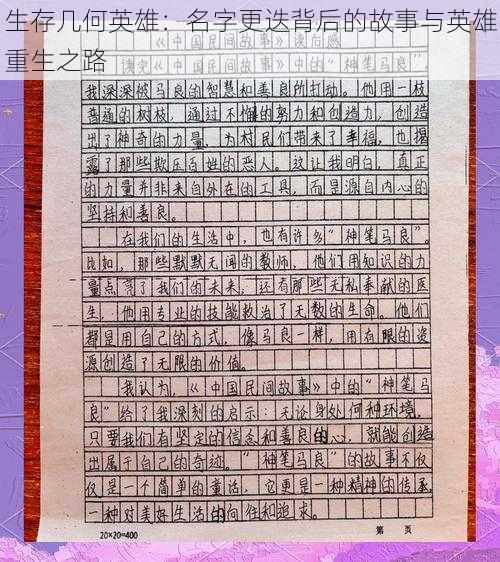 生存几何英雄：名字更迭背后的故事与英雄
重生之路
《中国民间故事》读后感
读完《中国民间故事》中的“神笔马良”，
我深深被马良的智慧和善良所打动。他用一枝
普通的树枝，通过不懈的努力和创造力，创造
出了神奇的力量，为村民们带来了幸福，也揭
露了那些欺压百姓的恶人。这让我明白，真正
的力量并非来自外在的工具，而是源自内心的
坚持和善良。
在我们的生活中，也有许多“神笔马良”。
比如，那些默默无闻的教师，他们用知识的力
量点亮了我们的未来，还有那些无私奉献的医
生，他用专业的技能救治了无数的生命。他们
都是用自己的方式，像马良一样，用有限的资
源创造了无限的价值。
我认为，《中国民间故事》中的“神笔马
良”给了我深刻的启示：无论身处何种环境，
只要我们有坚定的信念和善良的心，就能创造
出属于自己的奇迹。“神笔马良”的故事不仅
仅是一个简单的童话，它更是一种精神的传承，
一种对美好生活的向往和追求。
20×20=400
第 页